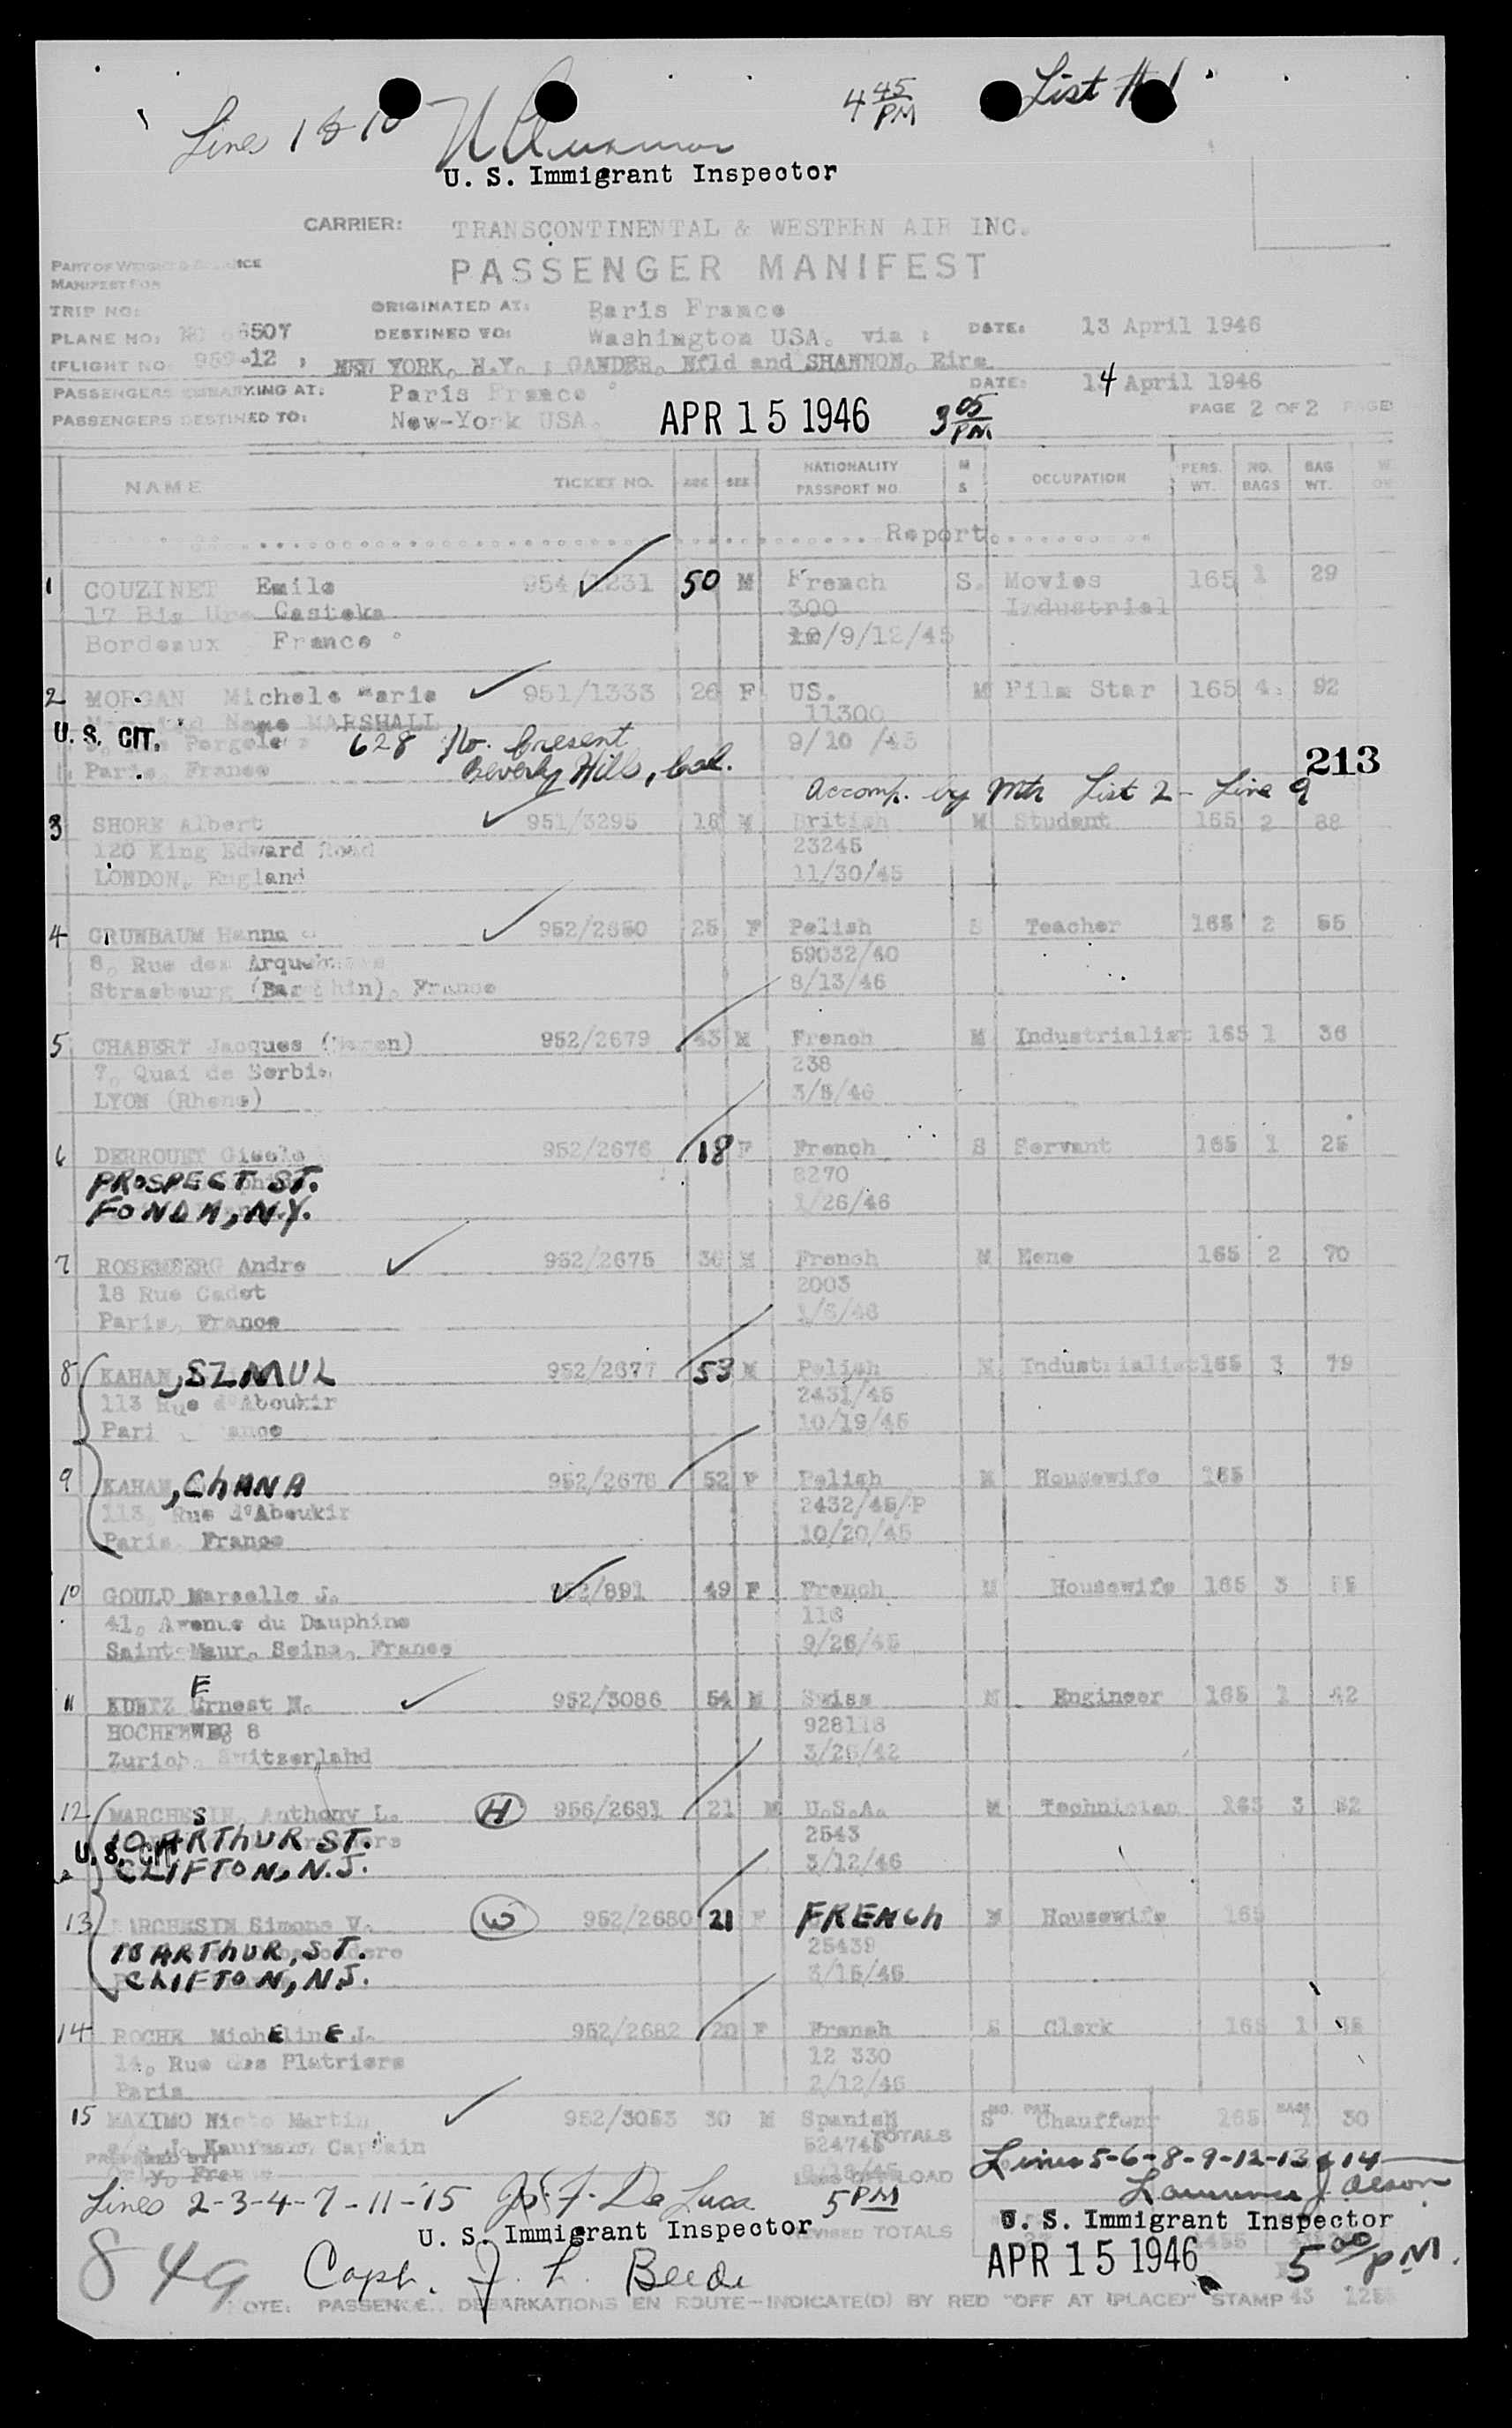 List # 1
4 45 PM
Line 1 & 10
U. S. Immigrant Inspector
CARRIER: TRANSCONTINENTAL & WESTERN AIR INC.
PASSENGER MANIFEST
PART OF WEIGHT & BALANCE
MANIFEST FOR
TRIP NO: ORIGINATED AT: Paris France
PLANE NO: 6507 DESTINED TO: Washington USA. via : DATE: 13 April 1946
(FLIGHT NO. 969-12 ; NEW YORK, N.Y. ; GANDER, Nfld and SHANNON, Eire
PASSENGERS EMBARKING AT: Paris France DATE: 14 April 1946
PASSENGERS DESTINED TO: New-York USA. APR 15 1946 3 05 PM PAGE 2 OF 2 PAGES
NAME TICKET NO. AGE SEX NATIONALITY PASSPORT NO. M S OCCUPATION PERS. WT. NO. BAGS BAG WT.
Report
1 COUZINET Emile 954/1231 50 M French S. Movies 165 1 29
17 Bis Casteka 300 Industrial
Bordeaux France 10/9/12/45
2 MORGAN Michele Marie 951/1333 26 F US. M Film Star 165 4 92
Name MARSHALL 11300
U. S. CIT. 628 No. Cresent 9/10 /45
Paris, France Beverly Hills, Cal. 213
Accomp. by Mth List 2 - Line 9
3 SHORE Albert 951/3295 16 M British M Student 165 2 88
120 King Edward Road 23245
LONDON, England 11/30/45
4 GRUNBAUM Hanna 952/2650 25 F Polish S Teacher 165 2 55
8, Rue des 59032/40
Strasbourg (Bas Rhin), France 8/13/46
5 CHABERT Jacques 952/2679 43 M French M Industrialist 165 1 36
7, Quai de Serbie 238
LYON (Rhone) 3/5/46
6 DERROUET Gisele 952/2676 18 F French S Servant 165 1 25
PROSPECT ST. 8270
FONDA, N.Y. 1/26/46
7 ROSEMBERG Andre 952/2675 36 M French M None 165 2 70
18 Rue Cadet 2003
Paris, France 1/5/46
8 KAHAN, SZMUL 952/2677 53 M Polish M Industrialist 165 3 79
113 Rue d'Aboukir 2431/45
Paris France 10/19/45
9 KAHAN, CHANA 952/2678 52 F Polish M Housewife 165
113, Rue d'Aboukir 2432/45/P
Paris France 10/20/45
10 GOULD Marcelle J. 952/891 49 F French M Housewife 165 3
41, Avenue du Dauphine 116
Saint-Maur, Seine, France 9/26/45
11 KUNTZ Ernest N. 952/3086 54 M Swiss M Engineer 165 1 42
HOCHEWEG 8 928118
Zurich, Switzerland 3/26/42
12 MARCHESIN, Anthony L. H 956/2681 21 M U.S.A. M Technician 165 3 52
10 ARTHUR ST. 2543
U. S. CIT CLIFTON, N.J. 3/12/46
13 MARCHESIN Simone V. W 952/2680 21 F FRENCH M Housewife 165
10 ARTHUR, ST. 25439
CLIFTON, N.J. 3/15/46
14 ROCHE MichElinE J. 952/2682 20 F French S Clerk 165 1
14, Rue des Platriers 12 330
Paris 2/12/46
15 MAXIMO Nieto Martin 952/3053 30 M Spanish S Chauffeur 165 1 30
J. Kaufmann Captain 524745 TOTALS
Orly, France
Lines 5-6-8-9-12-13 & 14
Lines 2-3-4-7-11-15 Jos. F. De Luca 5 PM
U. S. Immigrant Inspector REVISED TOTALS
U. S. Immigrant Inspector
APR 15 1946 5 00 PM.
849 Capt. J. L. Beede
NOTE: PASSENGER DEBARKATIONS EN ROUTE—INDICATE(D) BY RED "OFF AT (PLACE)" STAMP 43